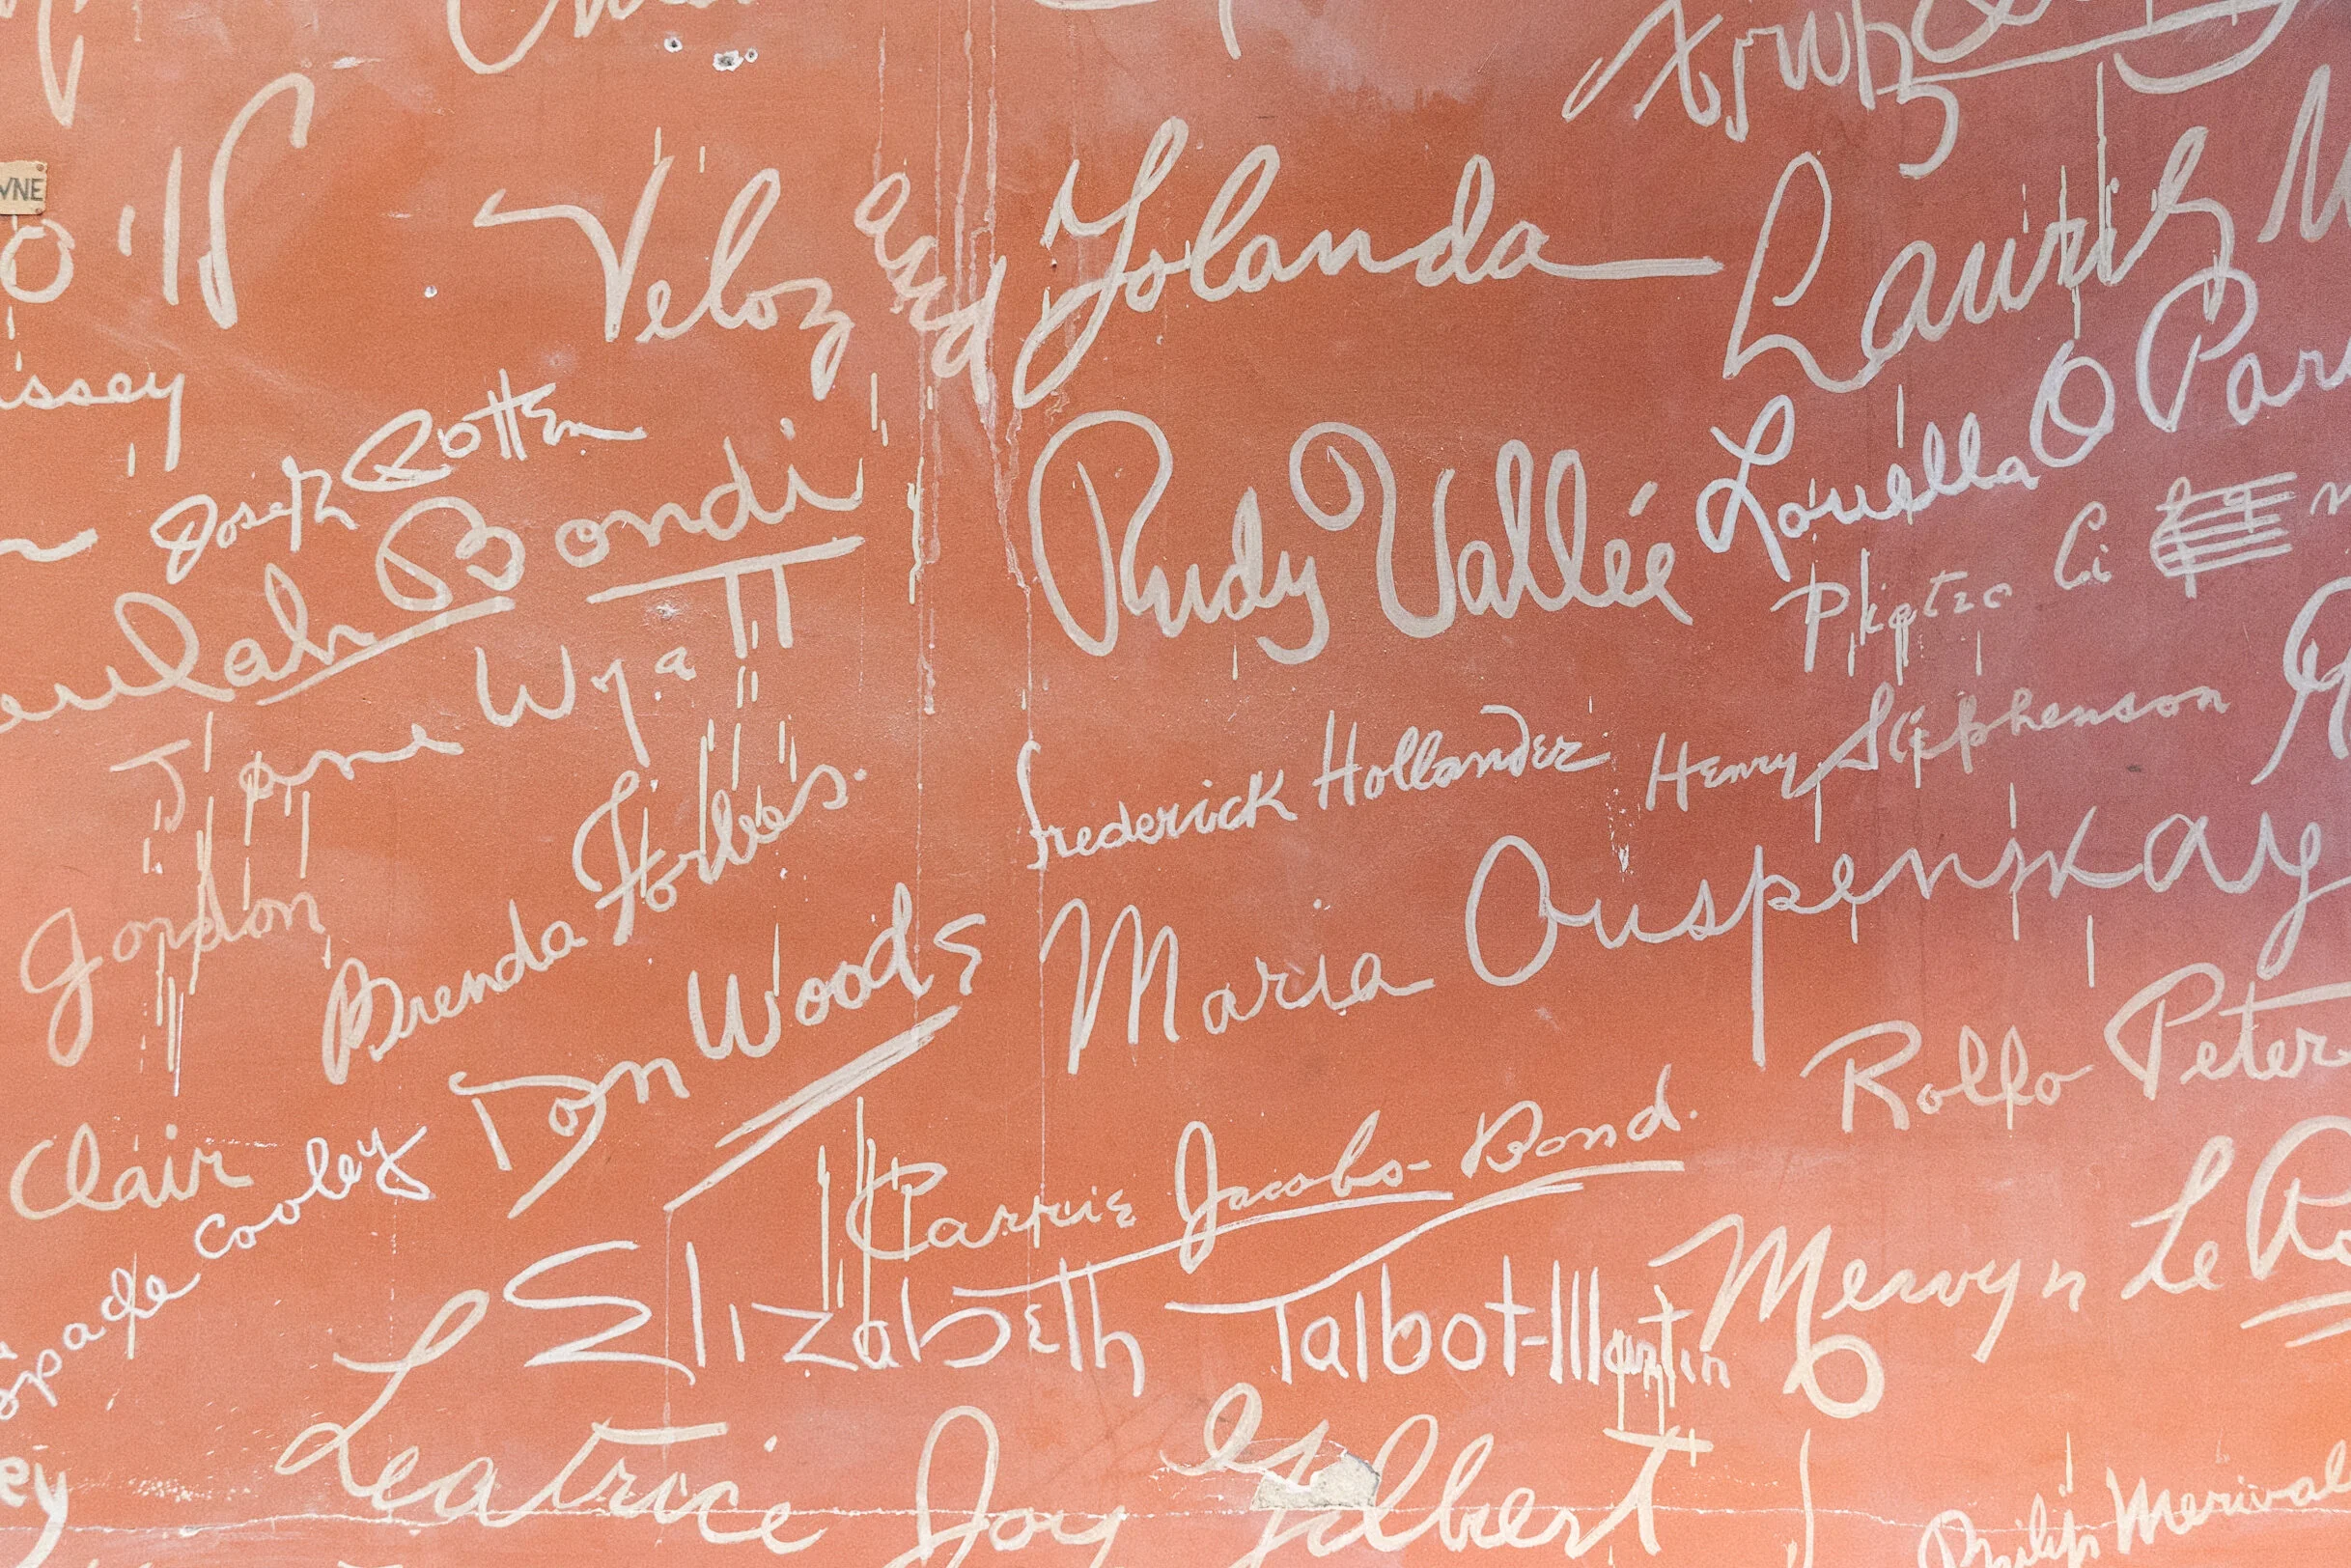 WNE
Veloz and Yolanda
Lauritz M
issey
Joseph Cotten
eulah Bondi
Rudy Vallée
Louella O Par
Jane Wyatt
Frederick Hollander
Henry Stephenson
Gordon
Brenda Forbes.
Don Woods
Maria Ouspenskay
Rollo Peter
Clair
Spade Cooley
Carrie Jacobs-Bond.
Mervyn Le Ro
Elizabeth Talbot-Martin
Leatrice Joy Gilbert
ey
Philip Merival